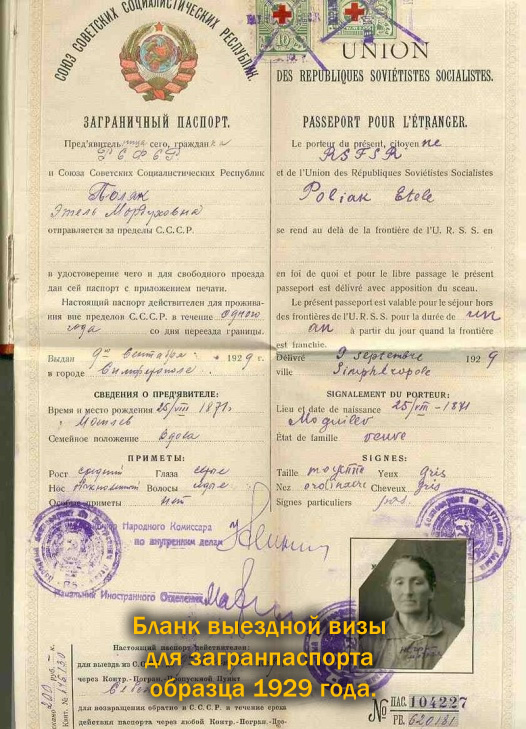 СОЮЗ СОВЕТСКИХ СОЦИАЛИСТИЧЕСКИХ РЕСПУБЛИК.
ЗАГРАНИЧНЫЙ ПАСПОРТ.
Пред'явитель сего, граждан
РСФСР
и Союза Советских Социалистических Республик
Поляк
Этель Мордуховна
отправляется за пределы С.С.С.Р.
в удостоверение чего и для свободного проезда
дан сей паспорт с приложением печати.
Настоящий паспорт действителен для прожива-
ния вне пределов С.С.С.Р. в течение одного
года со дня переезда границы.
Выдан 9го Сентября 1929 г.
в городе Симферополе
СВЕДЕНИЯ О ПРЕД'ЯВИТЕЛЕ:
Время и место рождения 25/VIII 1871г.
Могилев
Семейное положение вдова
ПРИМЕТЫ:
Рост средний Глаза серые
Нос Волосы серые
Особые приметы нет
Народного Комиссара
по внутренним делам
Начальник Иностранного Отделения
Настоящий паспорт действителен:
для выезда из С.С.
через Контр.-Погран.-Пропускной Пункт
для возвращения обратно в С.С.С.Р. в течение срока
действия паспорта через любой Контр.-Погран.-Про-
UNION
DES REPUBLIQUES SOVIÉTISTES SOCIALISTES.
PASSEPORT POUR L'ÉTRANGER.
Le porteur du présent, citoyen ne
RSFSR
et de l'Union des Républiques Soviétistes Socialistes
Poliak Etele
se rend au delà de la frontière de l'U. R. S. S. en
en foi de quoi et pour le libre passage le présent
passeport est délivré avec apposition du sceau.
Le présent passeport est valable pour le séjour hors
des frontières de l'U. R. S. S. pour la durée de un
an à partir du jour quand la frontière
est franchie.
Délivré 9 septembre 1929
ville Simphéropole
SIGNALEMENT DU PORTEUR:
Lieu et date de naissance 25/VIII-1871
Moguilev
État de famille veuve
SIGNES:
Taille moyenne Yeux gris
Nez ordinaire Cheveux gris
Signes particuliers
№ ПАС. 104227
РЕ. 620181
Бланк выездной визы
для загранпаспорта
образца 1929 года.